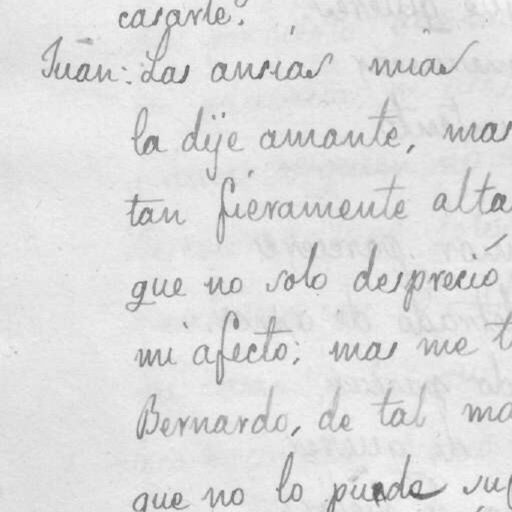 casarte.
Juan: Las ansias mias
la dije amante, mas
tan fieramente alta
que no solo despreció
mi afecto; mas me t
Bernardo, de tal ma
que no lo puede suf